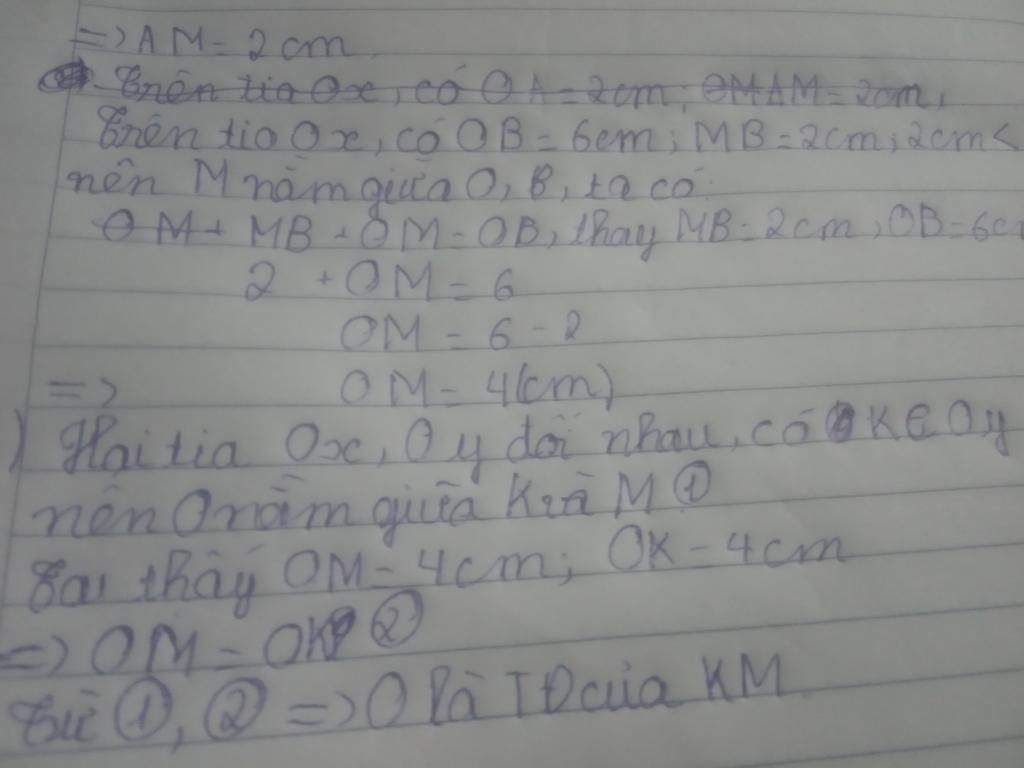 => AM = 2cm
Trên tia Ox, có OA = 2cm; OM AM = 2cm,
Trên tia Ox, có OB = 6cm; MB = 2cm; 2cm <
nên M nằm giữa O, B, ta có:
OM + MB + OM = OB, thay MB = 2cm, OB = 6cm
2 + OM = 6
OM = 6 - 2
=> OM = 4(cm)
) Hai tia Ox, Oy đối nhau, có K ∈ Oy
nên O nằm giữa K và M ①
Ta thấy OM = 4cm; OK = 4cm
=> OM = OK ②
Từ ①, ② => O là TĐ của KM